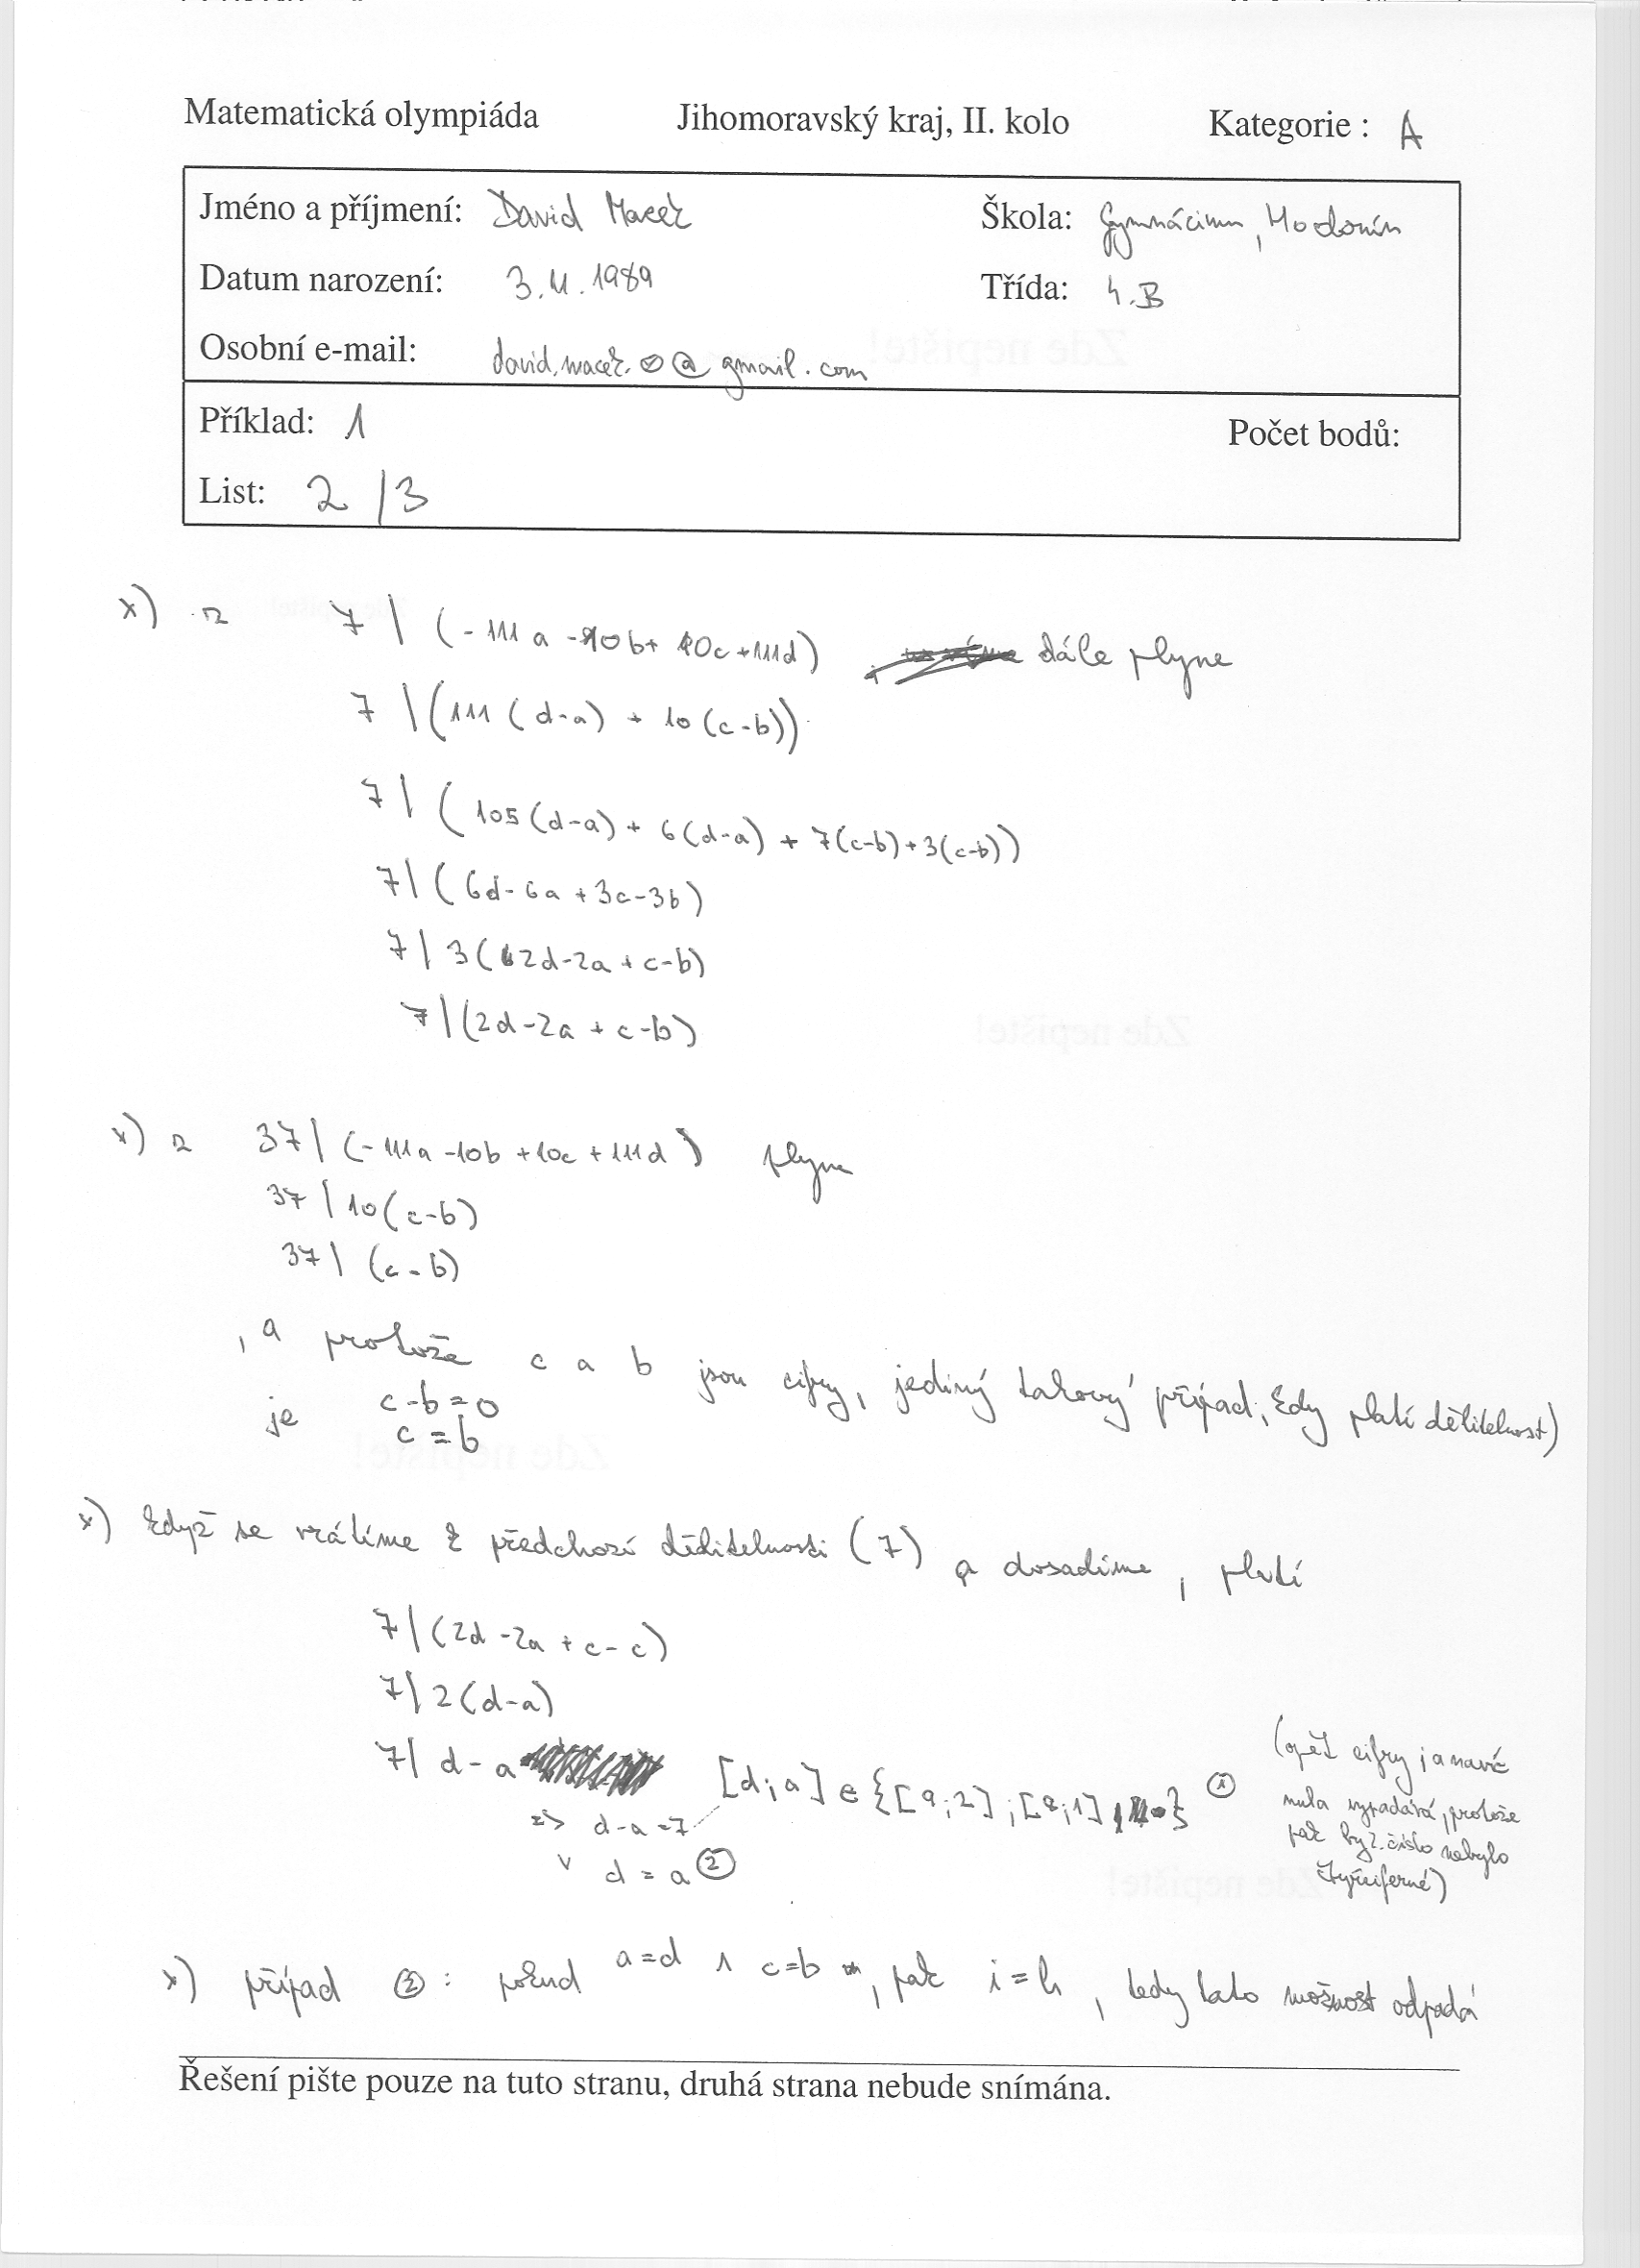 Matematická olympiáda Jihomoravský kraj, II. kolo Kategorie : A
Jméno a příjmení: David Macek Škola: Gymnázium, Hodonín
Datum narození: 3.11.1989 Třída: 4.B
Osobní e-mail: @gmail.com
Příklad: 1 Počet bodů:
List: 2/3
x) z 7 | (-111a -10b + 10c + 111d) , dále plyne
7 | (111(d-a) + 10(c-b))
7 | (105(d-a) + 6(d-a) + 7(c-b) + 3(c-b))
7 | (6d - 6a + 3c - 3b)
7 | 3(2d - 2a + c - b)
7 | (2d - 2a + c - b)
x) z 37 | (-111a - 10b + 10c + 111d) plyne
37 | 10(c-b)
37 | (c-b)
, a protože c a b jsou cifry, jediný takový případ, kdy platí dělitelnost)
je c-b=0
c=b
x) když se vrátíme k předchozí dělitelnosti (7) a dosadíme, platí
7 | (2d - 2a + c - c)
7 | 2(d-a)
7 | d-a [d;a] ∈ {[9;2];[8;1]} ①
=> d-a=7
v d=a ②
(opět cifry, a navíc
nula vypadává, protože
pak by č. číslo nebylo
čtyřciferné)
x) případ ②: pokud a=d ∧ c=b, pak i=h, tedy tato možnost odpadá
Řešení pište pouze na tuto stranu, druhá strana nebude snímána.